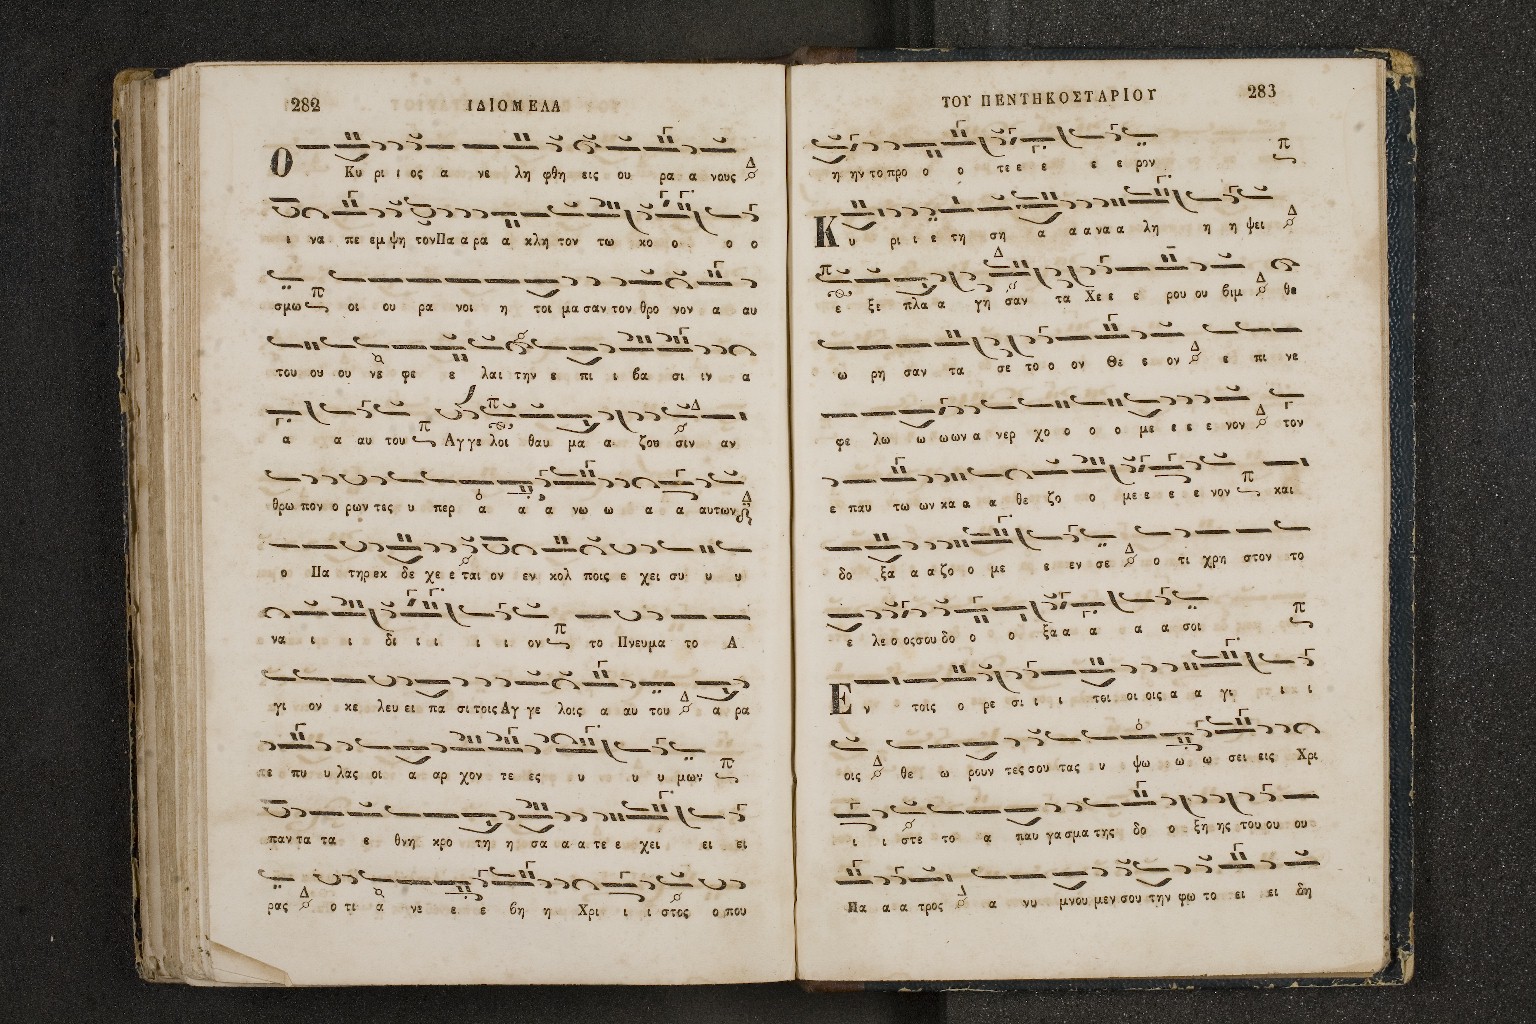 282 ΙΔΙΟΜΕΛΑ
Ο Κυ ρι ι ος α νε λη φθη εις ου ρα α νους
ι να πε εμ ψη τον Πα α ρα α κλη τον τω κο ο ο ο
σμω οι ου ρα νοι η τοι μα σαν τον θρο νον α αυ
του ου ου νε φε ε λαι την ε πι ι βα σι ιν α
α α αυ του Αγ γε λοι θαυ μα α ζου σιν αν
θρω πον ο ρων τες υ περ α α α νω ω α α αυτων
ο Πα τηρ εκ δε χε ε ται ον εν κολ ποις ε χει συ υ υ
να ι ι δι ι ι ι ι ον το Πνευμα το Α
γι ον κε λευ ει πα σι τοις Αγ γε λοις α αυ του α ρα
τε πυ υ λας οι α αρ χον τε ες υ υ υ μων
παν τα τα ε θνη κρο τη η σα α α τε ε χει ει ει
ρας ο τι α νε ε ε βη η Χρι ι ι στος ο που
ΤΟΥ ΠΕΝΤΗΚΟΣΤΑΡΙΟΥ 283
η ην το προ ο ο τε ε ε ε ε ρον
Κ υ ρι ι ε τη ση α α α να α λη η η ψει
ε ξε πλα α γη σαν τα Χε ε ε ρου ου βιμ θε
ω ρη σαν τα σε το ο ον Θε ε ον ε πι νε
φε λω ω ω ων α νερ χο ο ο ο με ε ε ε νον τον
ε παυ τω ων κα α α θε ζο ο με ε ε ε ε νον και
δο ξα α α ζο ο με ε εν σε ο τι χρη στον το
ε λε ο ος σου δο ο ο ξα α α α α σοι
Ε ν τοις ο ρε σι ι ι τοι οι οις α α γι ι ι
οις θε ω ρουν τες σου τας υ ψω ω ω σει εις Χρι
ι ι στε το α παυ γα σμα της δο ο ξη ης του ου ου
Πα α α τρος α νυ μνου μεν σου την φω το ει ει δη